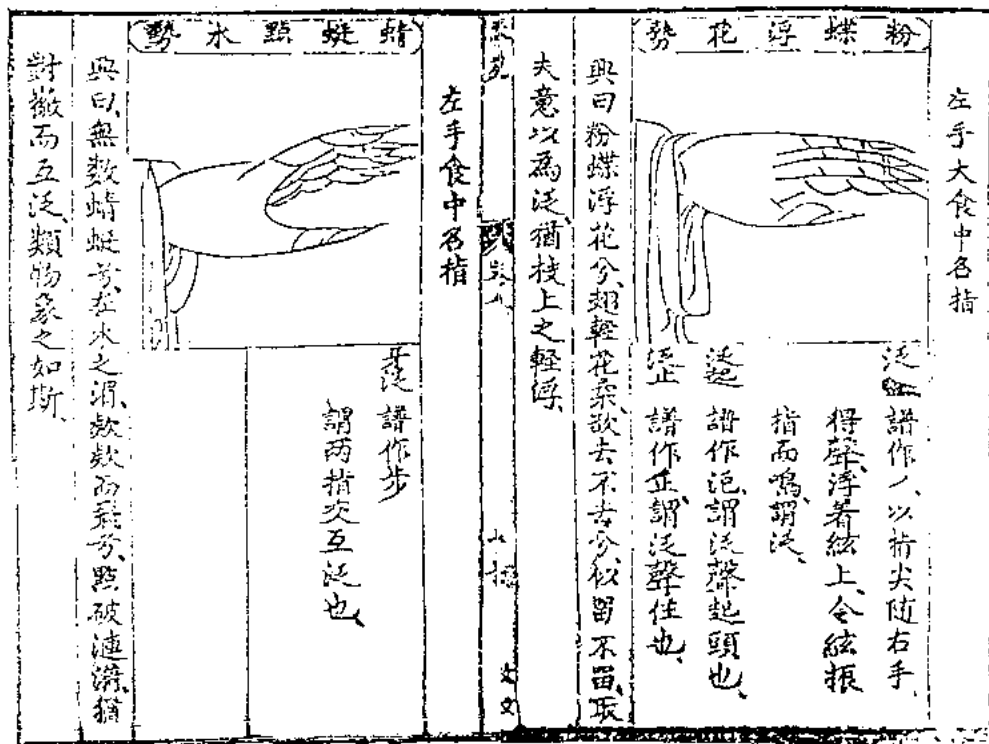 左手大食中名指
粉蝶浮花勢
泛 譜作、以指尖随右手
得聲、浮着絃上、令絃振
指而鳴、謂泛、
泛起 譜作𣵀、謂泛聲起頭也、
泛止 譜作正、謂泛聲住也、
興曰粉蝶浮花兮、翅輕花柔、欲去不去兮、似留不留、取
夫意以為泛、猶枝上之輕浮、
左手食中名指
蜻蜓點水勢
互泛 譜作步
謂两指次互泛也、
興曰、無數蜻蜓兮、在水之湄、款款而飛兮、點破漣漪、猶
對撇而互泛、類物象之如斯、